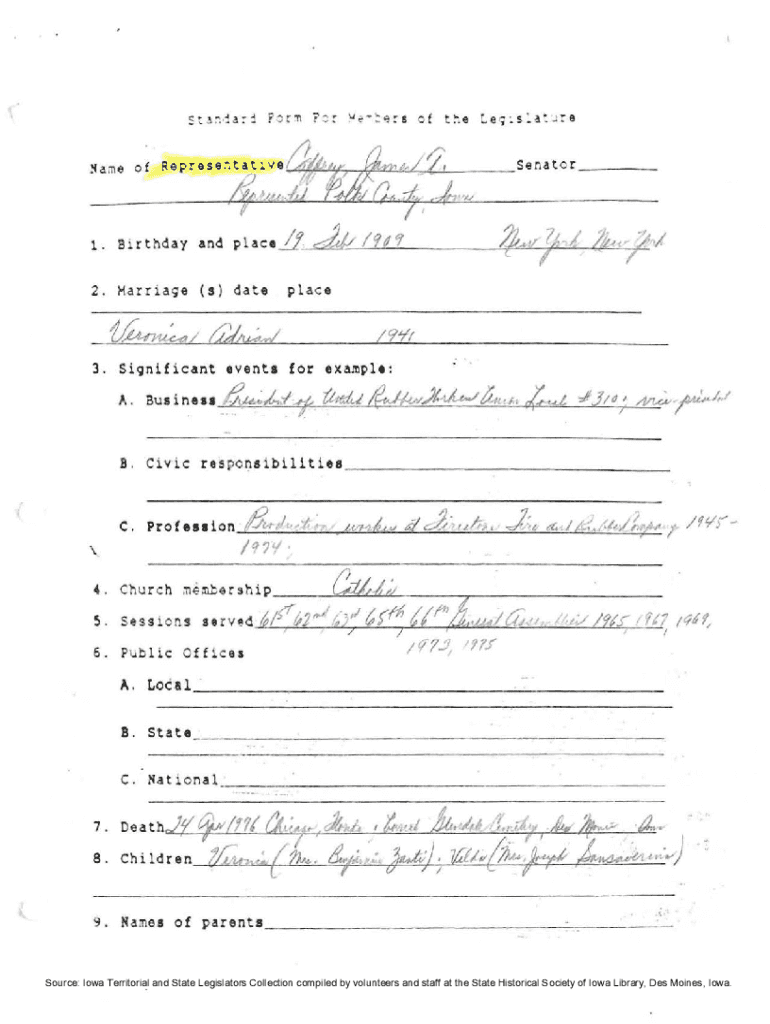 Standard Form For Members of the Legislature
Name of Representative Caffrey, James T. Senator
Represented Polk County, Iowa
1. Birthday and place 19 Feb 1909 New York, New York
2. Marriage (s) date place
Veronica Adrian 1941
3. Significant events for example:
A. Business President of United Rubber Workers Union Local #310; vice-president
B. Civic responsibilities
C. Profession Production worker at Firestone Tire and Rubber Company 1945-
1974;
4. Church membership Catholic
5. Sessions served 61st, 62nd, 63rd, 65th, 66th General Assemblies 1965, 1967, 1969,
1973, 1975
6. Public Offices
A. Local
B. State
C. National
7. Death 24 Apr 1976 Chicago, buried Glendale Cemetery, Des Moines Iowa
8. Children Veronica (Mrs. Benjamin Zanti); Velda (Mrs. Joseph Sansaverino)
9. Names of parents
Source: Iowa Territorial and State Legislators Collection compiled by volunteers and staff at the State Historical Society of Iowa Library, Des Moines, Iowa.